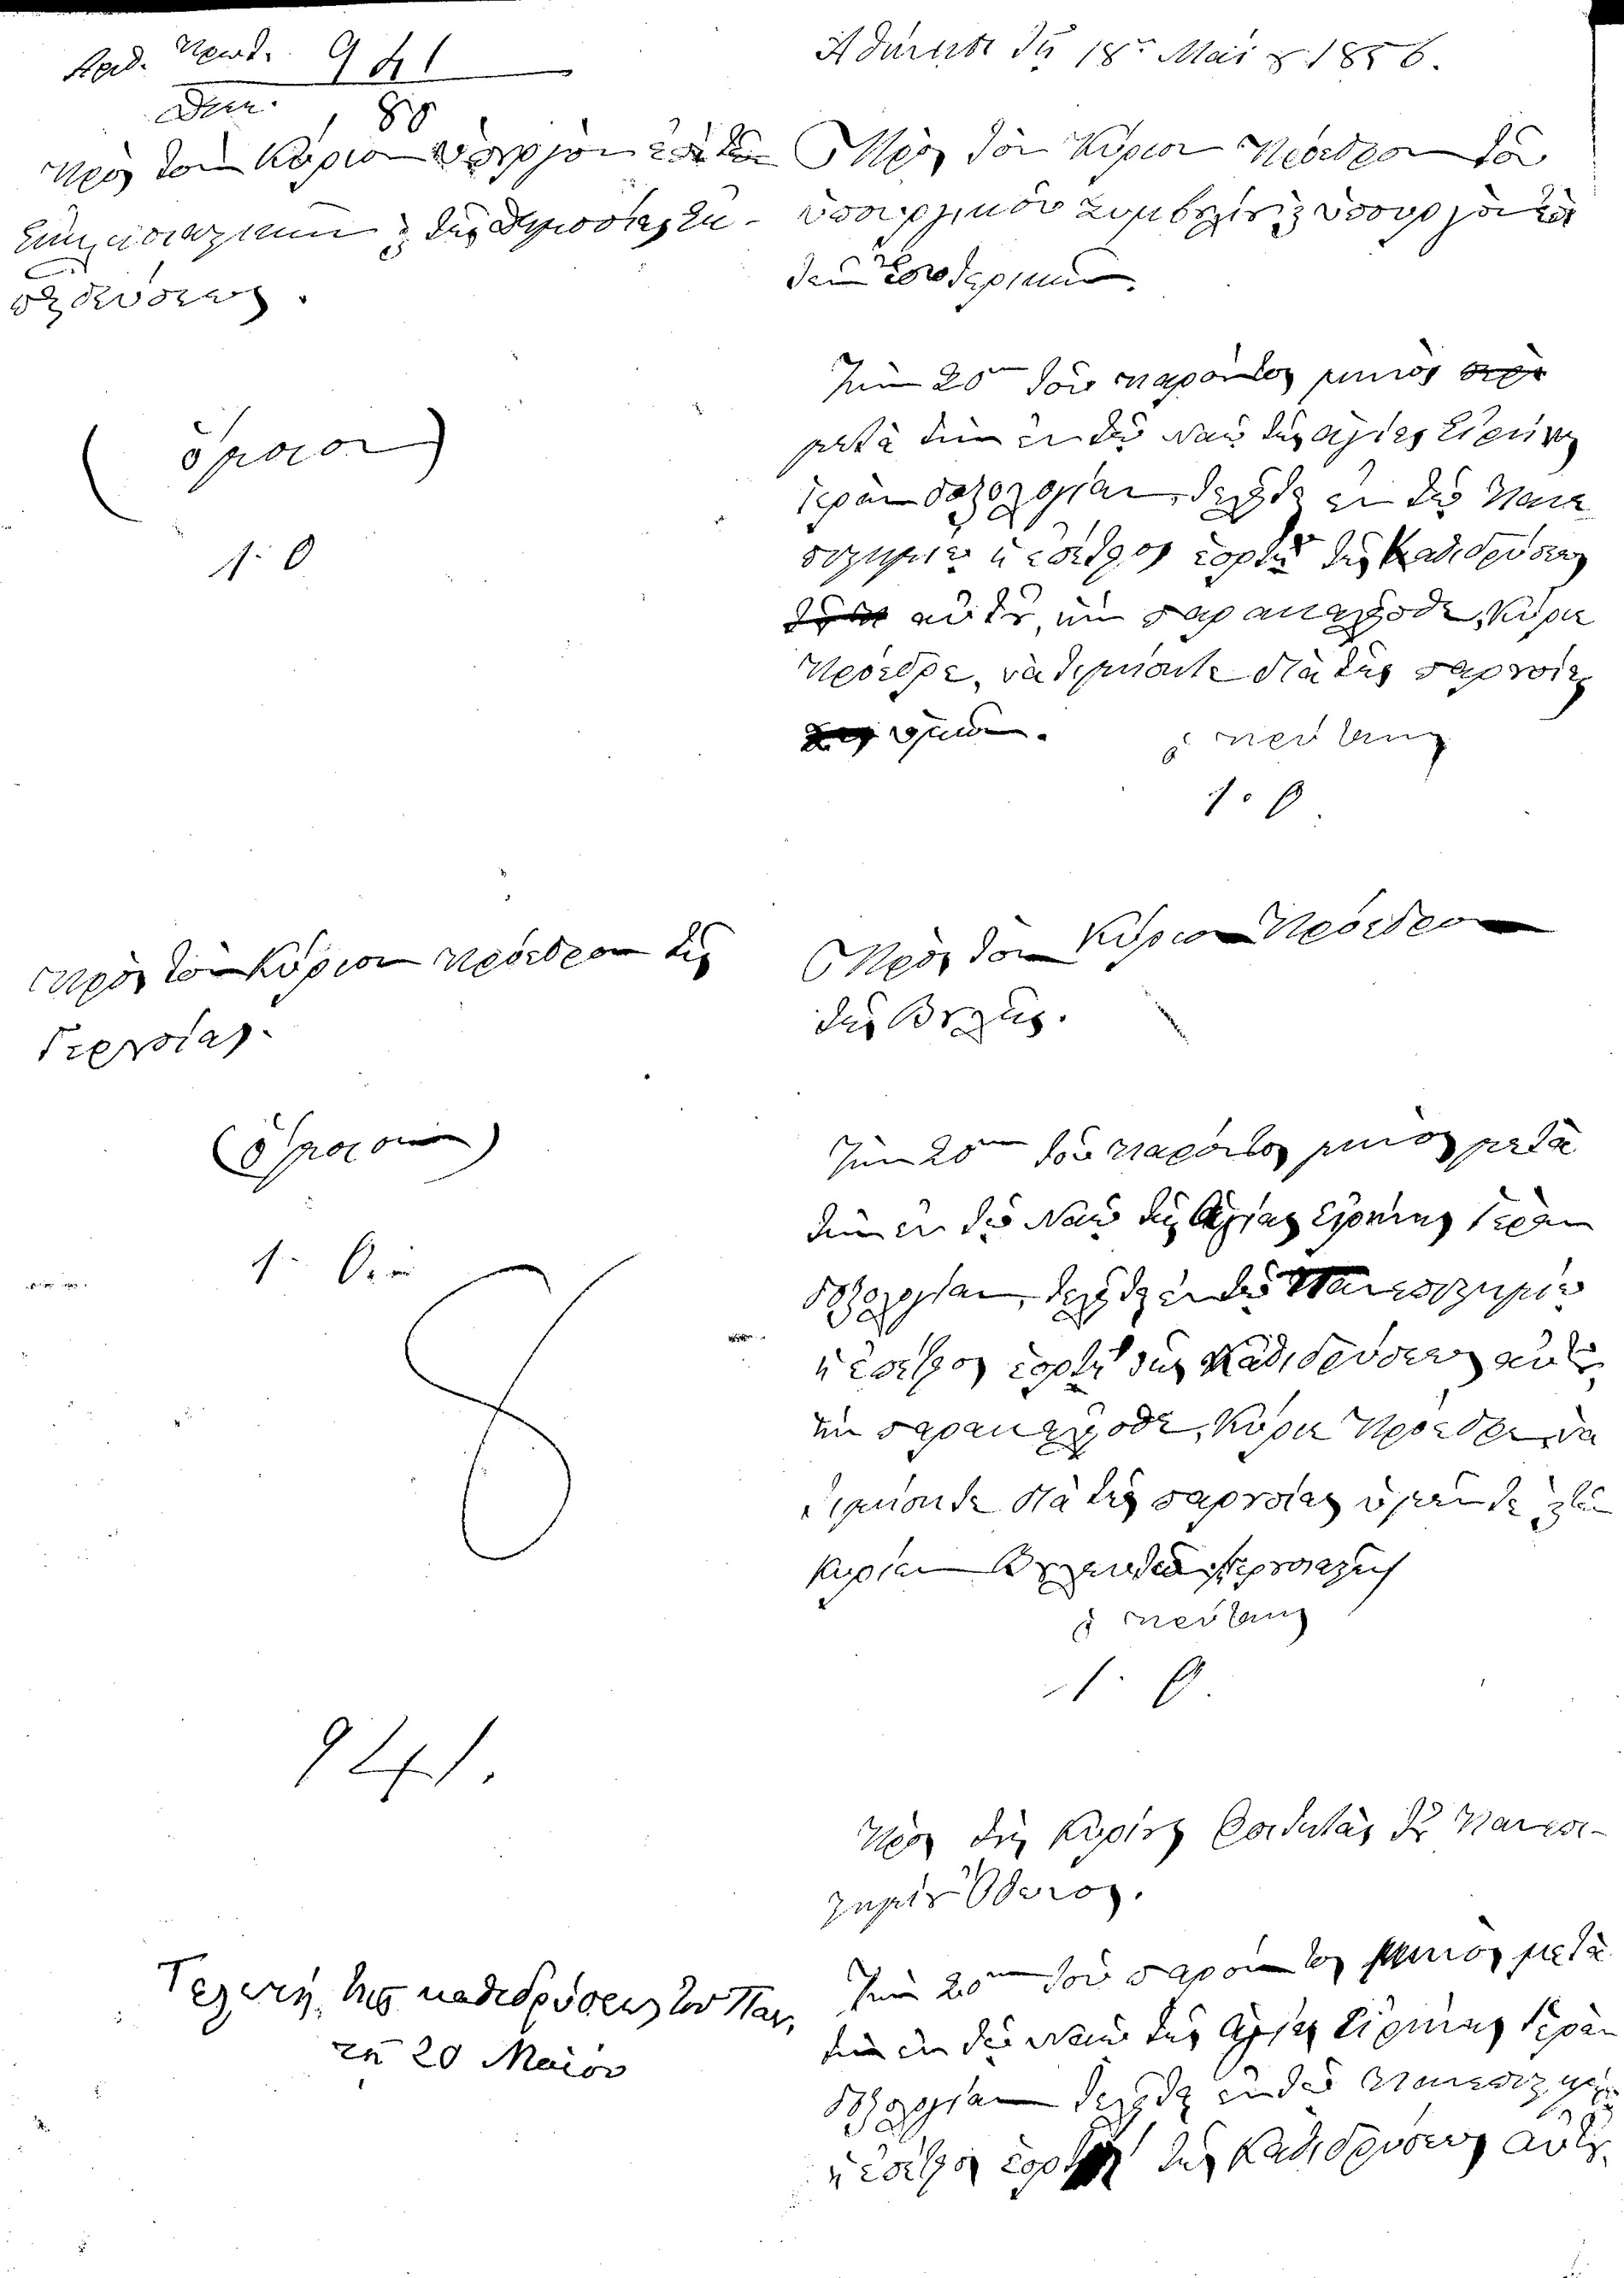 Ἀριθ. Πρωτ. 941
Διεκ. 88
Πρὸς τὸν Κύριον Ὑπουργὸν ἐπὶ τῶν
Ἐκκλησιαστικῶν καὶ τῆς Δημοσίας Ἐκ-
παιδεύσεως.
(ὅμοιον)
Ἀθήνησι τῇ 18ῃ Μαΐου 1856.
Πρὸς τὸν Κύριον Πρόεδρον τοῦ
ὑπουργικοῦ Συμβουλίου, ὑπουργὸν ἐπὶ
τῶν Ἐσωτερικῶν.
Τὴν 20ην τοῦ παρόντος μηνὸς
μετὰ τὴν ἐν τῷ Ναῷ τῆς Ἁγίας Εἰρήνης
ἱερὰν δοξολογίαν, τελεῖται ἐν τῷ Πανε-
πιστημίῳ ἡ ἐπέτειος ἑορτὴ τῆς Καθιδρύσεως
αὐτοῦ, ἣν παρακαλεῖσθε, Κύριε
Πρόεδρε, νὰ τιμήσητε διὰ τῆς παρουσίας
ὑμῶν.
ὁ πρύτανις
Πρὸς τὸν Κύριον Πρόεδρον τῆς
Γερουσίας.
(ὅμοιον)
Πρὸς τὸν Κύριον Πρόεδρον
τῆς Βουλῆς.
Τὴν 20ην τοῦ παρόντος μηνὸς μετὰ
τὴν ἐν τῷ Ναῷ τῆς Ἁγίας Εἰρήνης ἱερὰν
δοξολογίαν, τελεῖται ἐν τῷ Πανεπιστημίῳ
ἡ ἐπέτειος ἑορτὴ τῆς Καθιδρύσεως αὐτοῦ,
ἣν παρακαλεῖσθε, Κύριε Πρόεδρε, νὰ
τιμήσητε διὰ τῆς παρουσίας ὑμῶν τε καὶ τῶν
Κυρίων Βουλευτῶν
ὁ πρύτανις
941.
Πρὸς τοὺς Κυρίους Φοιτητὰς τοῦ Πανεπι-
στημίου Ὄθωνος.
Τελετὴ τῆς καθιδρύσεως τοῦ Παν.
τῇ 20 Μαΐου
Τὴν 20ην τοῦ παρόντος μηνὸς μετὰ
τὴν ἐν τῷ Ναῷ τῆς Ἁγίας Εἰρήνης ἱερὰν
δοξολογίαν τελεῖται ἐν τῷ Πανεπιστημίῳ
ἡ ἐπέτειος ἑορτὴ τῆς Καθιδρύσεως αὐτοῦ.